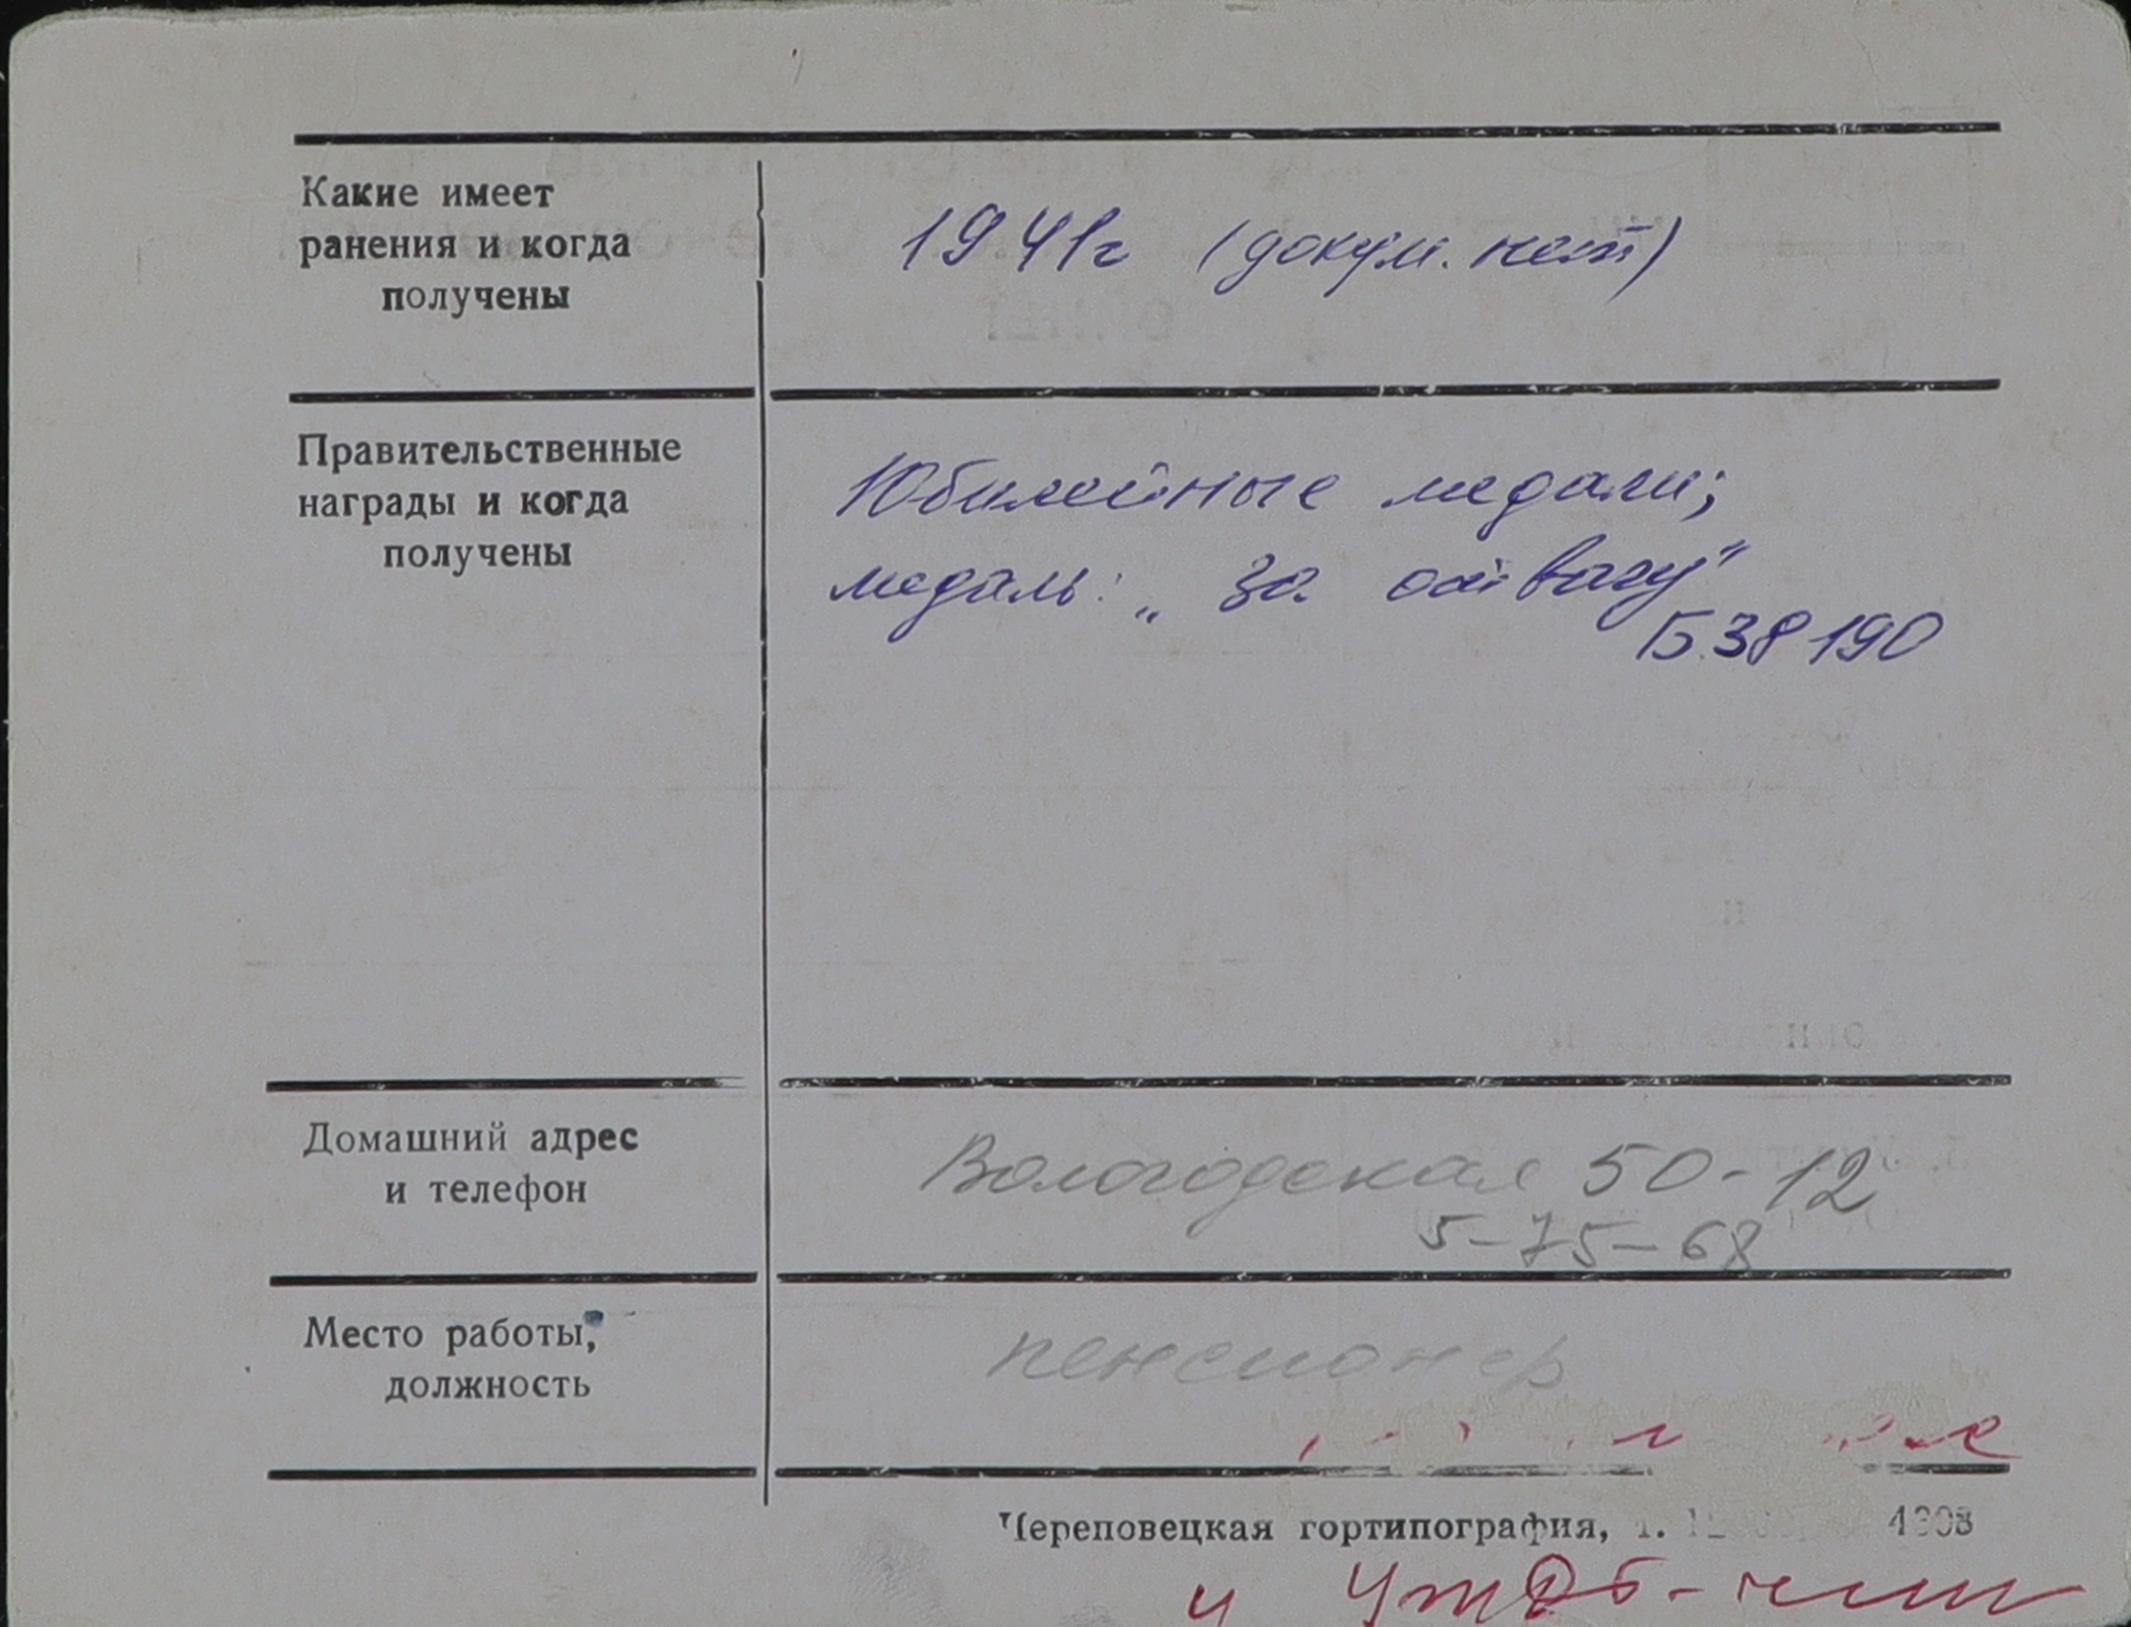 Какие имеет
ранения и когда
получены
1941г (докум. нет)
Правительственные
награды и когда
получены
Юбилейные медали;
медаль: „за отвагу"
Б.38190
Домашний адрес
и телефон
Вологодская 50-12
5-75-68
Место работы,
должность
пенсионер
Череповецкая гортипография, т.